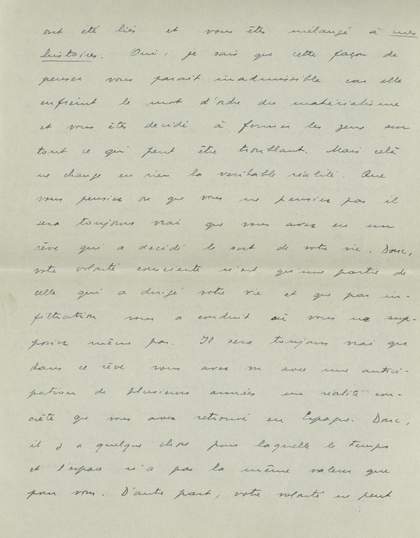 ont été liés et vous êtes mélangé à mes
histoires. Oui, je sais que cette façon de
penser vous paraît inadmissible car elle
enfreint le mot d'ordre du matérialisme
et vous êtes décidé à fermer les yeux sur
tout ce qui peut être troublant. Mais celà
ne change en rien la véritable réalité. Que
vous pensiez ou que vous ne pensiez pas il
sera toujours vrai que vous avez eu un
rêve qui a décidé le sort de votre vie. Donc,
votre volonté consciente n'est qu'une partie de
celle qui a dirigé votre vie et que par in-
filtration vous a conduit où vous ne sup-
posiez même pas. Il sera toujours vrai que
dans ce rêve vous avez vu avec une antici-
pation de plusieurs années une réalité con-
crète que vous avez retrouvé en Espagne. Donc,
il y a quelque chose pour laquelle le temps
et l'espace n'a pas la même valeur que
pour vous. D'autre part, votre volonté ne peut